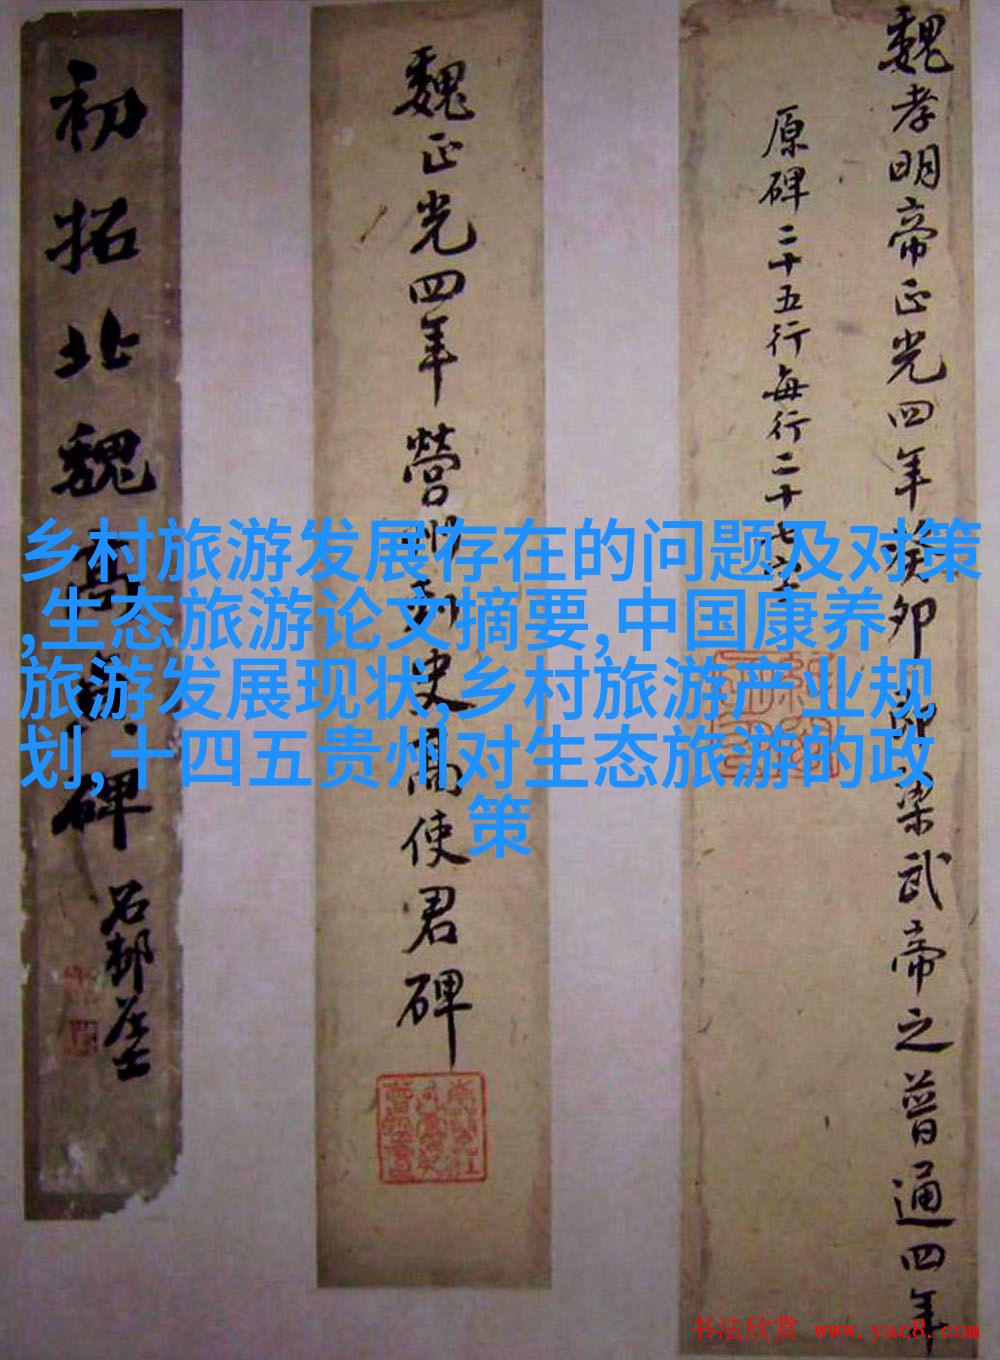 魏孝明帝正光四年癸卯即梁武帝之普通四年
原碑二十五行每行二十七字
魏正光四年營州刺史高使君碑
初拓北魏高碑
石邨居士
乡村旅游发展存在的问题及对策
,生态旅游论文摘要,中国康养
旅游发展现状,乡村旅游产业规
划,十四五贵州对生态旅游的政
策
书法欣赏 www.yac8.com